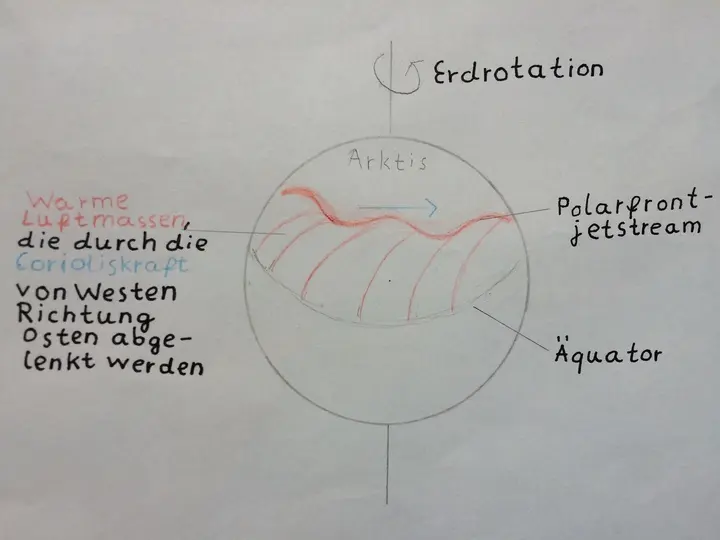 Erdrotation
Arktis
Warme
Luftmassen,
die durch die
Corioliskraft
von Westen
Richtung
Osten abge-
lenkt werden
Polarfront-
jetstream
Äquator